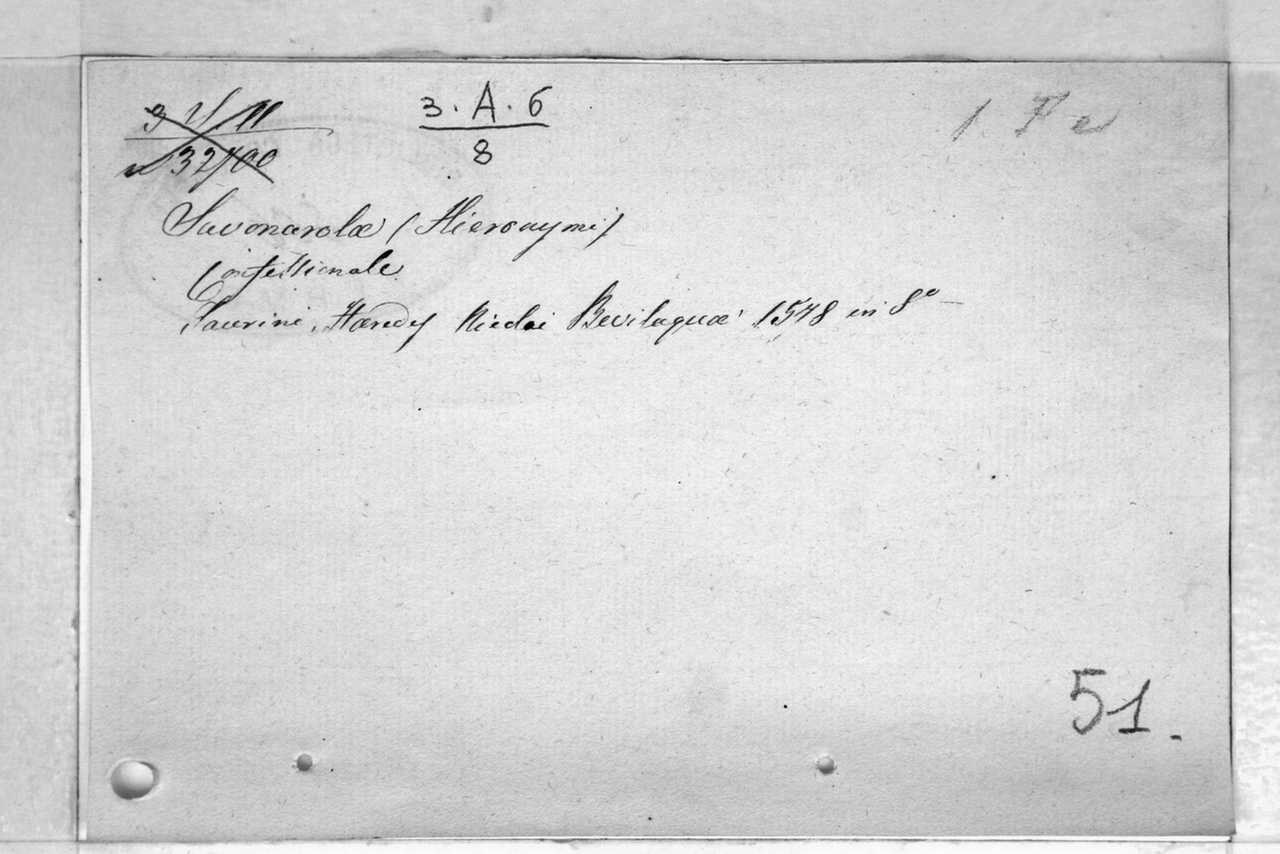 3. A. 6
8
Savonarolæ (Hieronymi)
Confessionale
Taurini, Hæredes Nicolai Bevilaquæ 1548 in 8º
51.